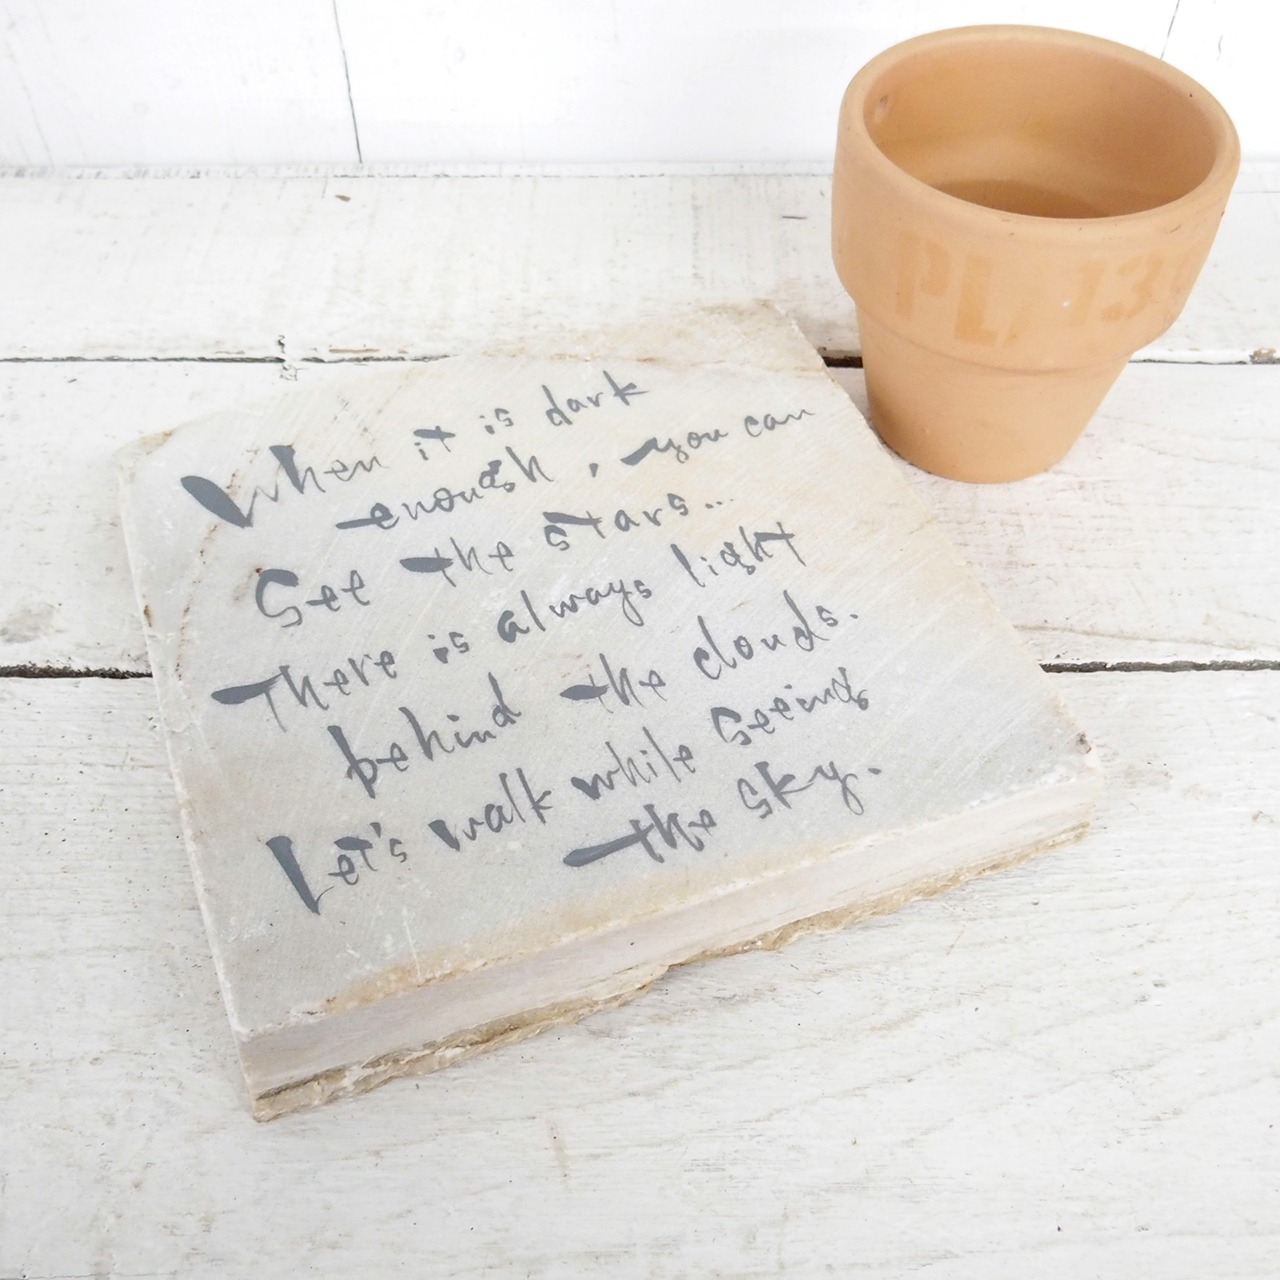 When it is dark
enough, you can
See the stars...
There is always light
behind the clouds.
Let's walk while seeing
the sky.
PL. 13